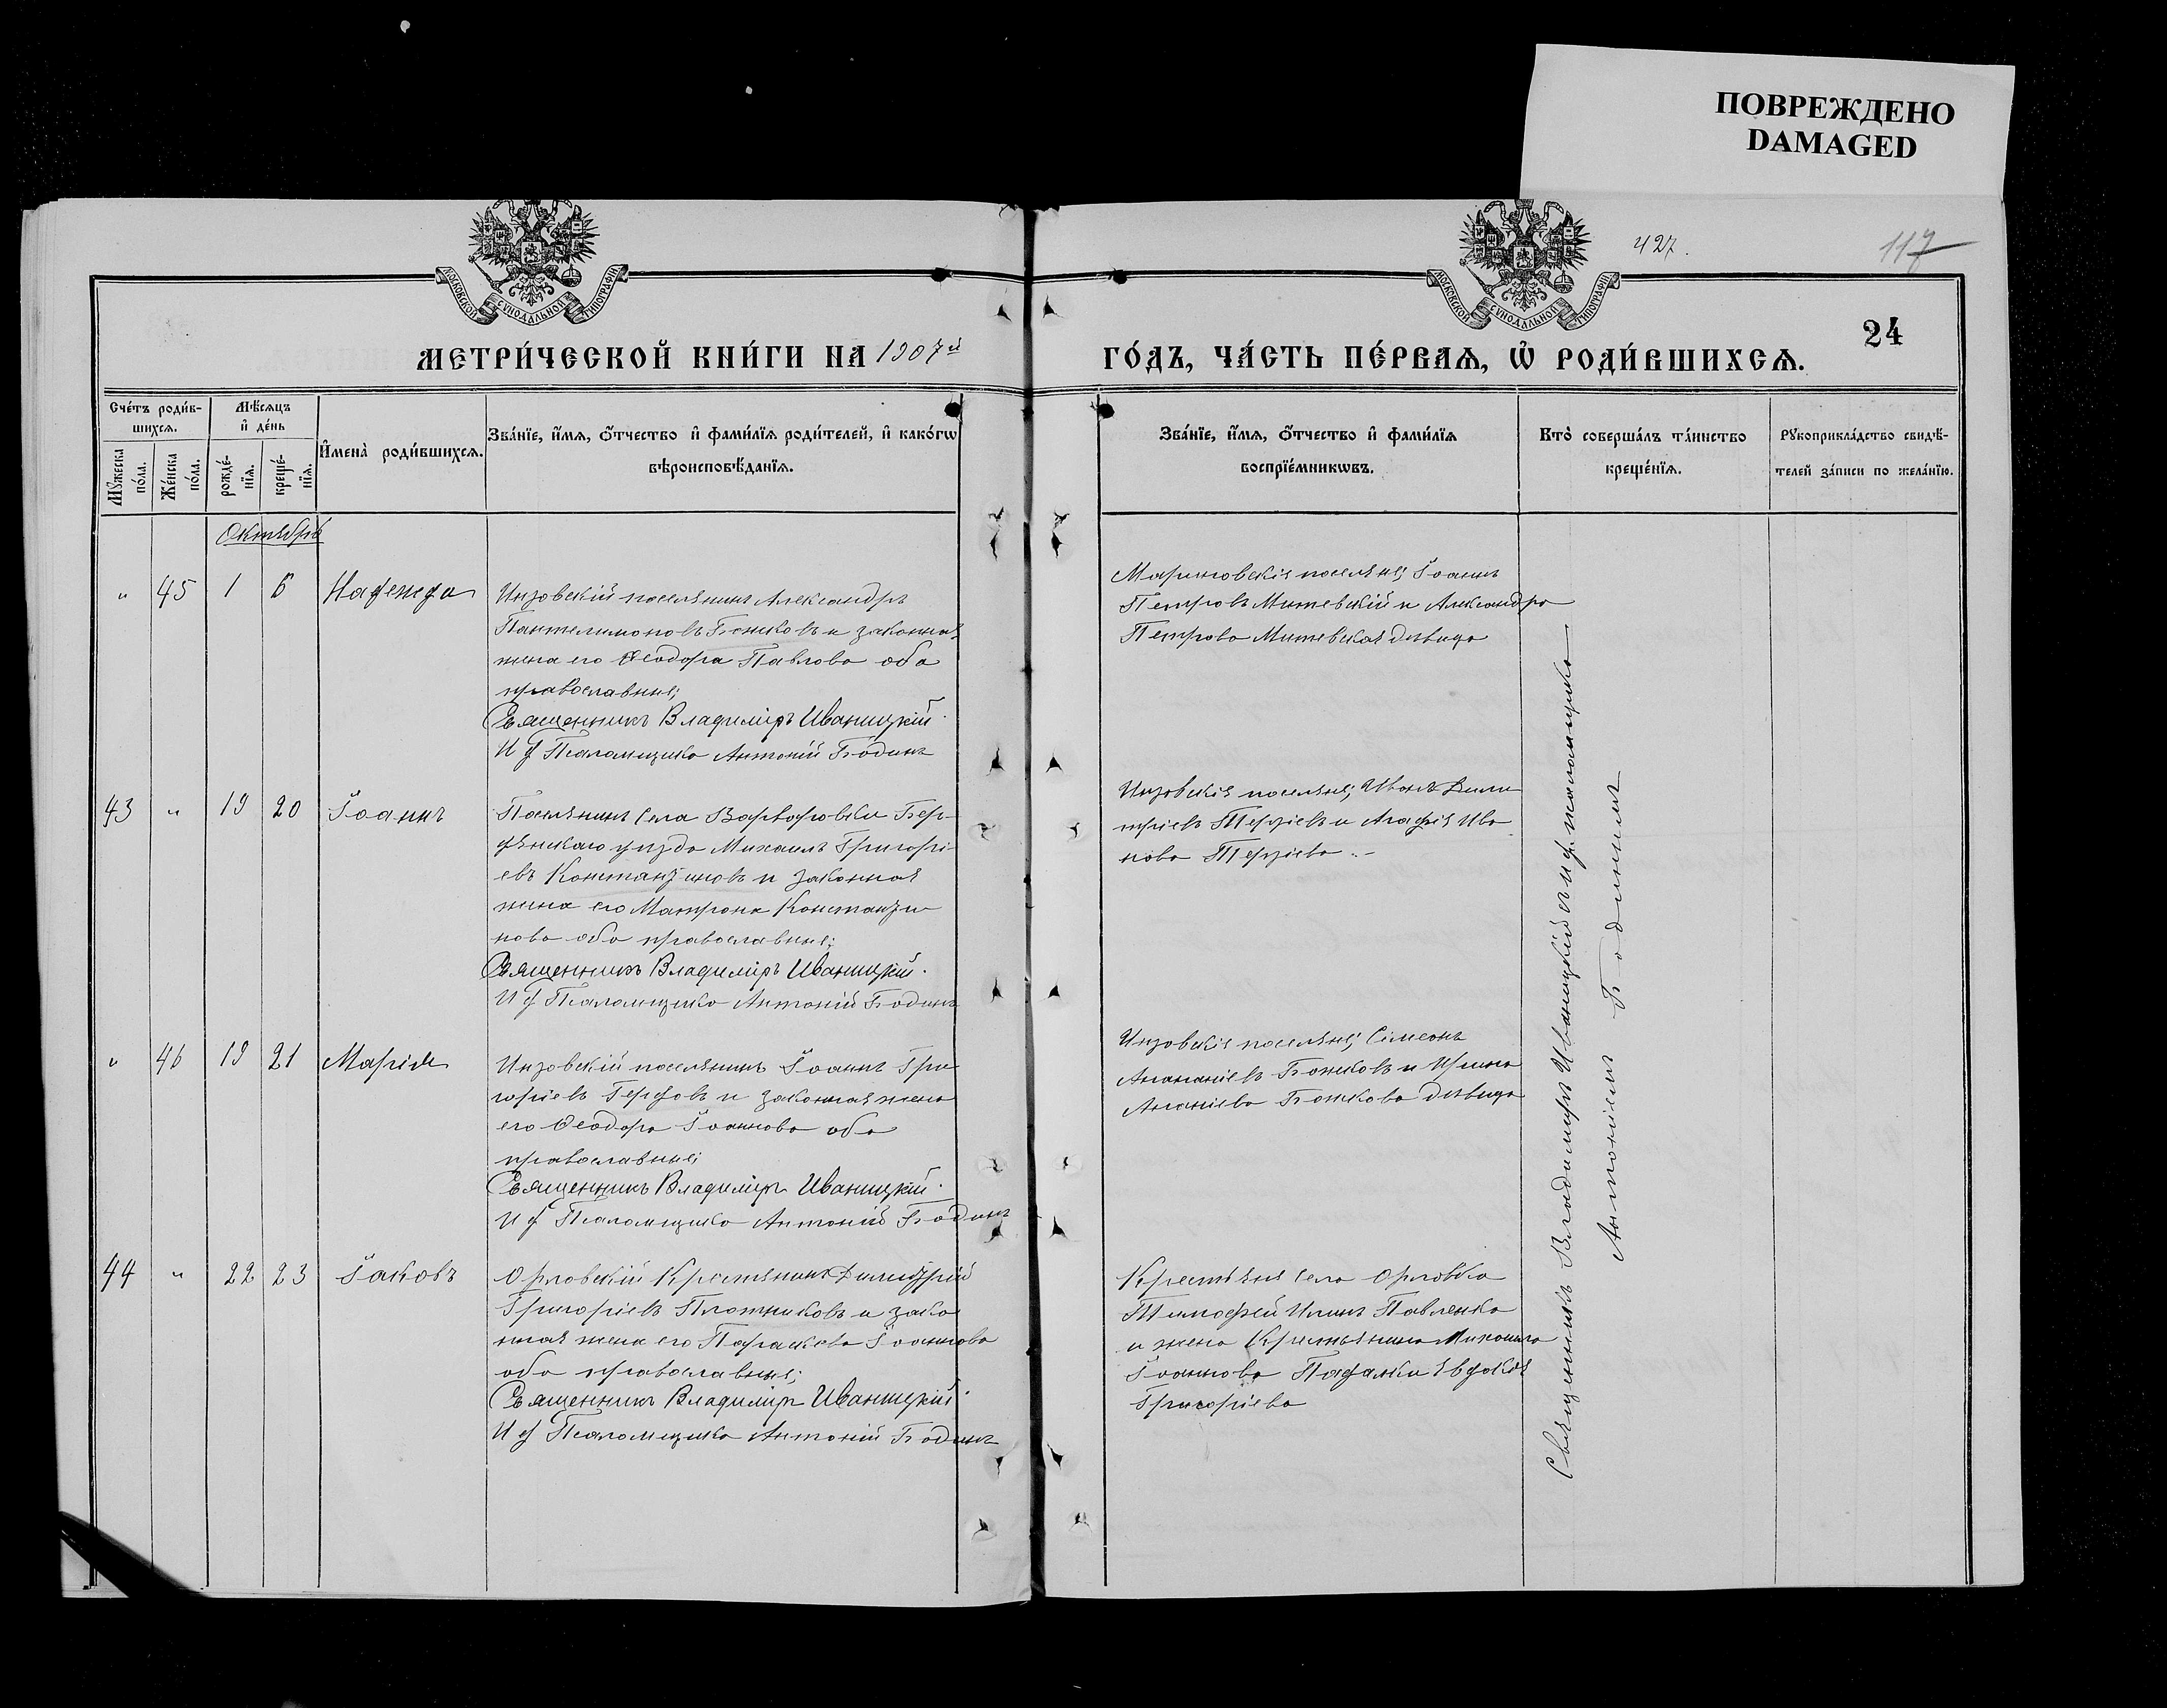 ПОВРЕЖДЕНО
DAMAGED
427.
117
24
МОСКОВСКОЙ СУНОДАЛЬНОЙ ТИПОГРАФІИ
МОСКОВСКОЙ СУНОДАЛЬНОЙ ТИПОГРАФІИ
МЕТРИ́ЧЕСКОЙ КНИ́ГИ НА 1907й
ГО́ДЪ, ЧА́СТЬ ПЕ́РВАѦ, Ѽ РОДИ́ВШИХСѦ.
Сче́тъ роди́в-
шихсѧ.
Мѣ́сѧцъ
и҆ де́нь
Мꙋ́жеска по́ла.
Же́нска по́ла.
рожде́-нїѧ.
креще́-нїѧ.
И҆мена̀ роди́вшихсѧ.
Зва́нїе, и҆́мѧ, ѻ҆́тчество и҆ фами́лїѧ роди́телей, и҆ како́гѡ
вѣроисповѣ́данїѧ.
Зва́нїе, и҆́мѧ, ѻ҆́тчество и҆ фами́лїѧ
воспрїе́мникѡвъ.
Кто̀ соверша́лъ та́инство
креще́нїѧ.
Рꙋкоприкла́дство свидѣ́-
телей за́писи по жела́нїю.
Октябрь
" 45 1 6 Надежда
Инзовскій поселянинъ Александръ
Пантелимоновъ Божковъ и законная
жена его Ѳеодора Павлова оба
православные;
Священникъ Владиміръ Иваницкій.
И ф Псаломщика Антоній Бодинъ
Мариновскіе поселяне; Іоаннъ
Петровъ Митевскій и Александра
Петрова Митевская девица
43 " 19 20 Іоаннъ
Поселянинъ села Варваровки Бер-
дянскаго уезда Михаилъ Григорі-
евъ Константиновъ и законная
жена его Матрона Константи
нова оба православные;
Священникъ Владиміръ Иваницкій.
И ф Псаломщика Антоній Бодинъ
Инзовскіе поселяне; Иванъ Дими
тріевъ Терзіевъ и Агафія Ива
нова Терзіева.-
" 46 19 21 Марія
Инзовскій поселянинъ Іоаннъ Гри
горіевъ Герговъ и законная жена
его Ѳеодора Іоаннова оба
православные;
Священникъ Владиміръ Иваницкій.
И ф Псаломщика Антоній Бодинъ
Инзовскіе поселяне; Симеонъ
Ананіевъ Божковъ и Ирина
Ананіева Божкова девица
44 " 22 23 Іаковъ
Орловскій Крестянинъ Димитрій
Григоріевъ Плотниковъ и зако
нная жена его Параскева Іоаннова
оба православные;
Священникъ Владиміръ Иваницкій.
И ф Псаломщика Антоній Бодинъ
Крестяне села Орловка
Тимофей Илинъ Павленко
и жена Крестьянина Михаила
Іоаннова Евдокія
Григоріева
Священникъ Владиміръ Иваницкій съ и ф. псаломщика
Антоніемъ Бодинымъ